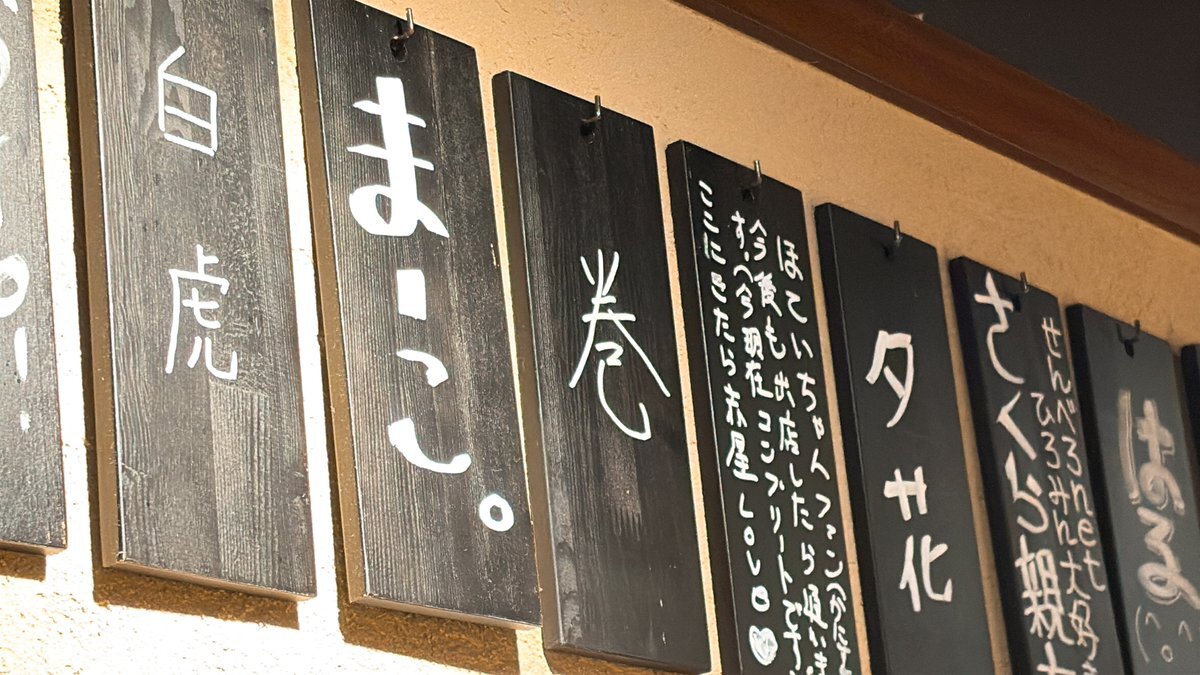 白虎
まーこ。
巻
ほていちゃんファン
今後も出店したら伺いま
す。(今現在コンプリートです
ここにきたら赤星
夕花
せんべろnet
ひろみん大好き
さくら親
はる